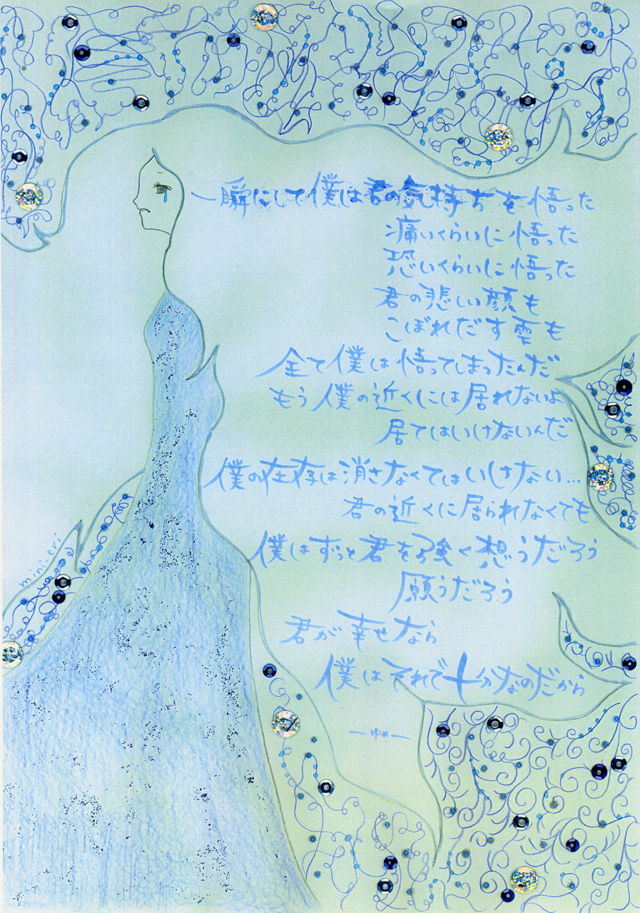 一瞬にして僕は君の気持ちを悟った
痛いくらいに悟った
恐いくらいに悟った
君の悲しい顔も
こぼれだす雫も
全て僕は悟ってしまったんだ
もう僕の近くには居れないよ
居てはいけないんだ
僕の存在は消さなくてはいけない…
君の近くに居られなくても
僕はずっと君を強く想うだろう
願うだろう
君が幸せなら
僕はそれで十分なのだから
―ゆめ―
mini.eri